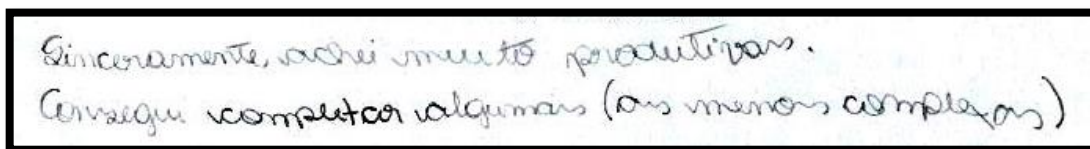 Sinceramente, achei muito produtivas.
Consegui completar algumas (as menos complexas)